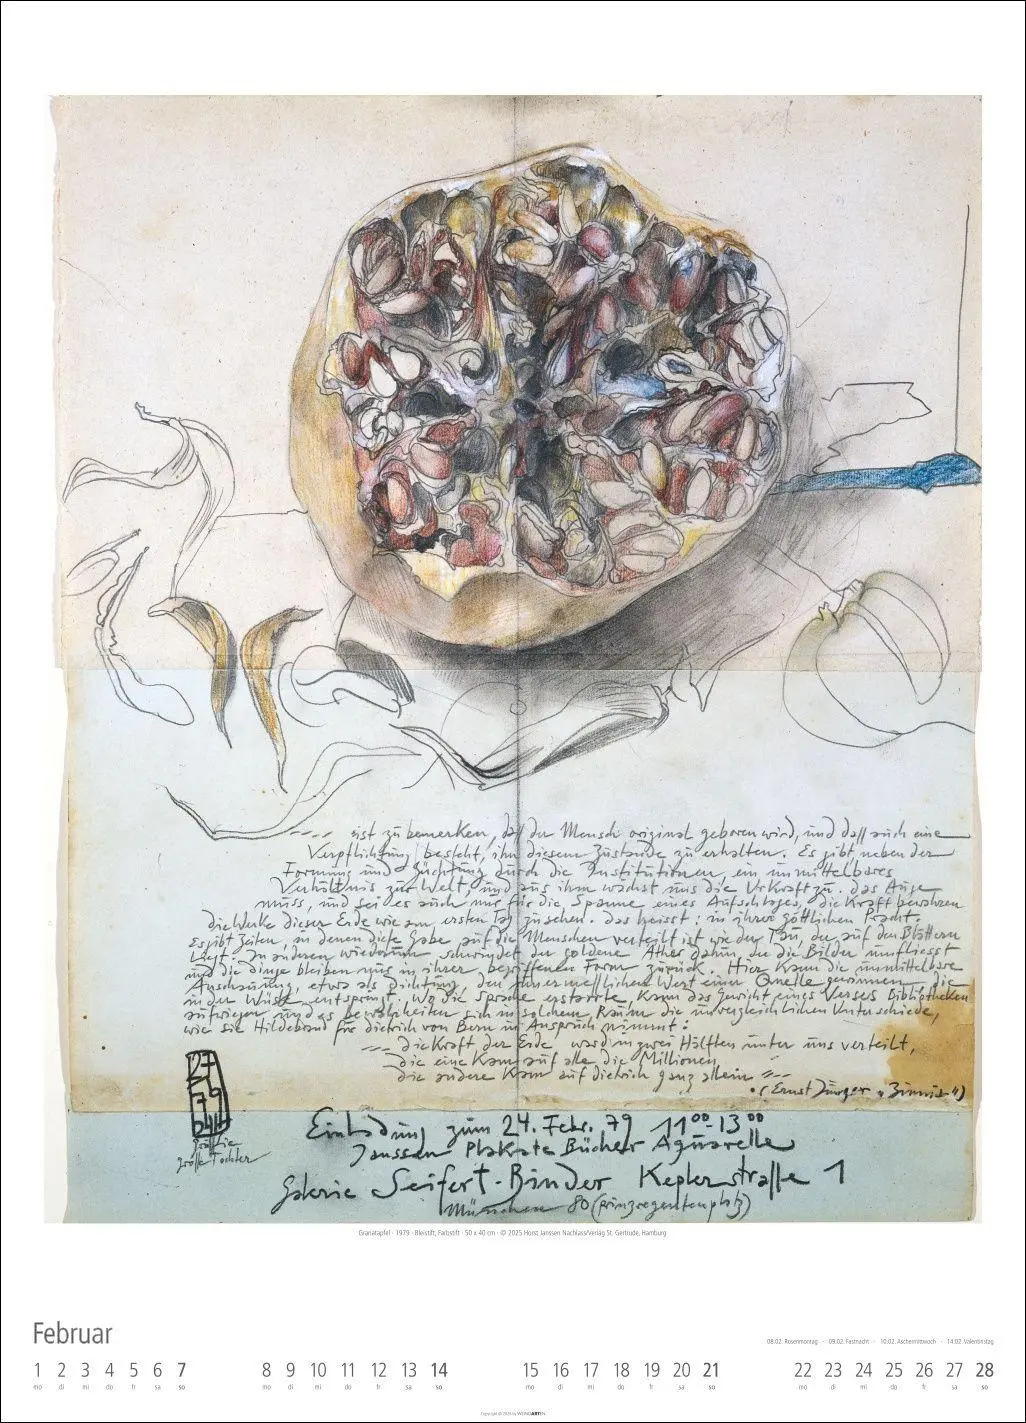 ---- ist zu bemerken, daß der Mensch original geboren wird, und daß auch eine
Verpflichtung besteht, ihn diesem Zustande zu erhalten. Es gibt neben der
Formung und Züchtung durch die Institutionen, ein unmittelbares
Verhältnis zur Welt, und aus ihm wächst uns die Urkraft zu. Das Auge
muss, und sei es auch nur für die Spanne eines Aufschlages, die Kraft bewahren
die Werke dieser Erde wie am ersten Tag zu sehen. Das heisst: in ihrer göttlichen Pracht.
Es gibt Zeiten, in denen diese Gabe auf die Menschen verteilt ist wie der Tau, der auf den Blättern
liegt. In anderen wiederum schwindet der goldene Äther dahin, der die Bilder umfliesst
und die Dinge bleiben nur in ihrer begriffenen Form zurück. Hier kann die unmittelbare
Anschauung, etwa als Dichtung, den unermesslichen Wert einer Quelle gewinnen, die
in der Wüste entspringt. Wo die Sprache erstarrte, kann das Gewicht eines Verses Bibliotheken
aufwiegen und es bewahrheiten sich in solchem Raum die unvergleichlichen Unterschiede,
wie sie Hildebrand für Dietrich von Bern in Anspruch nimmt:
--- die Kraft der Erde ward in zwei Hälften unter uns verteilt,
die eine kam auf alle die Millionen,
die andere kam auf Dietrich ganz allein "--
(Ernst Jünger „Zinnis")
27
79
große Tochter
Einladung zum 24. Febr. 79 11⁰⁰-13⁰⁰
Janssen Plakate Bücher Aquarelle
Galerie Seifert-Binder Keplerstraße 1
München 80 (prinzregentenplatz)
Granatapfel · 1979 · Bleistift, Farbstift · 50 x 40 cm · © 2025 Horst Janssen Nachlass/Verlag St. Gertrude, Hamburg
Februar
08.02. Rosenmontag · 09.02. Fastnacht · 10.02. Aschermittwoch · 14.02. Valentinstag
1 2 3 4 5 6 7 8 9 10 11 12 13 14 15 16 17 18 19 20 21 22 23 24 25 26 27 28
mo di mi do fr sa so mo di mi do fr sa so mo di mi do fr sa so mo di mi do fr sa so
Copyright © 2025 by WEINGARTEN